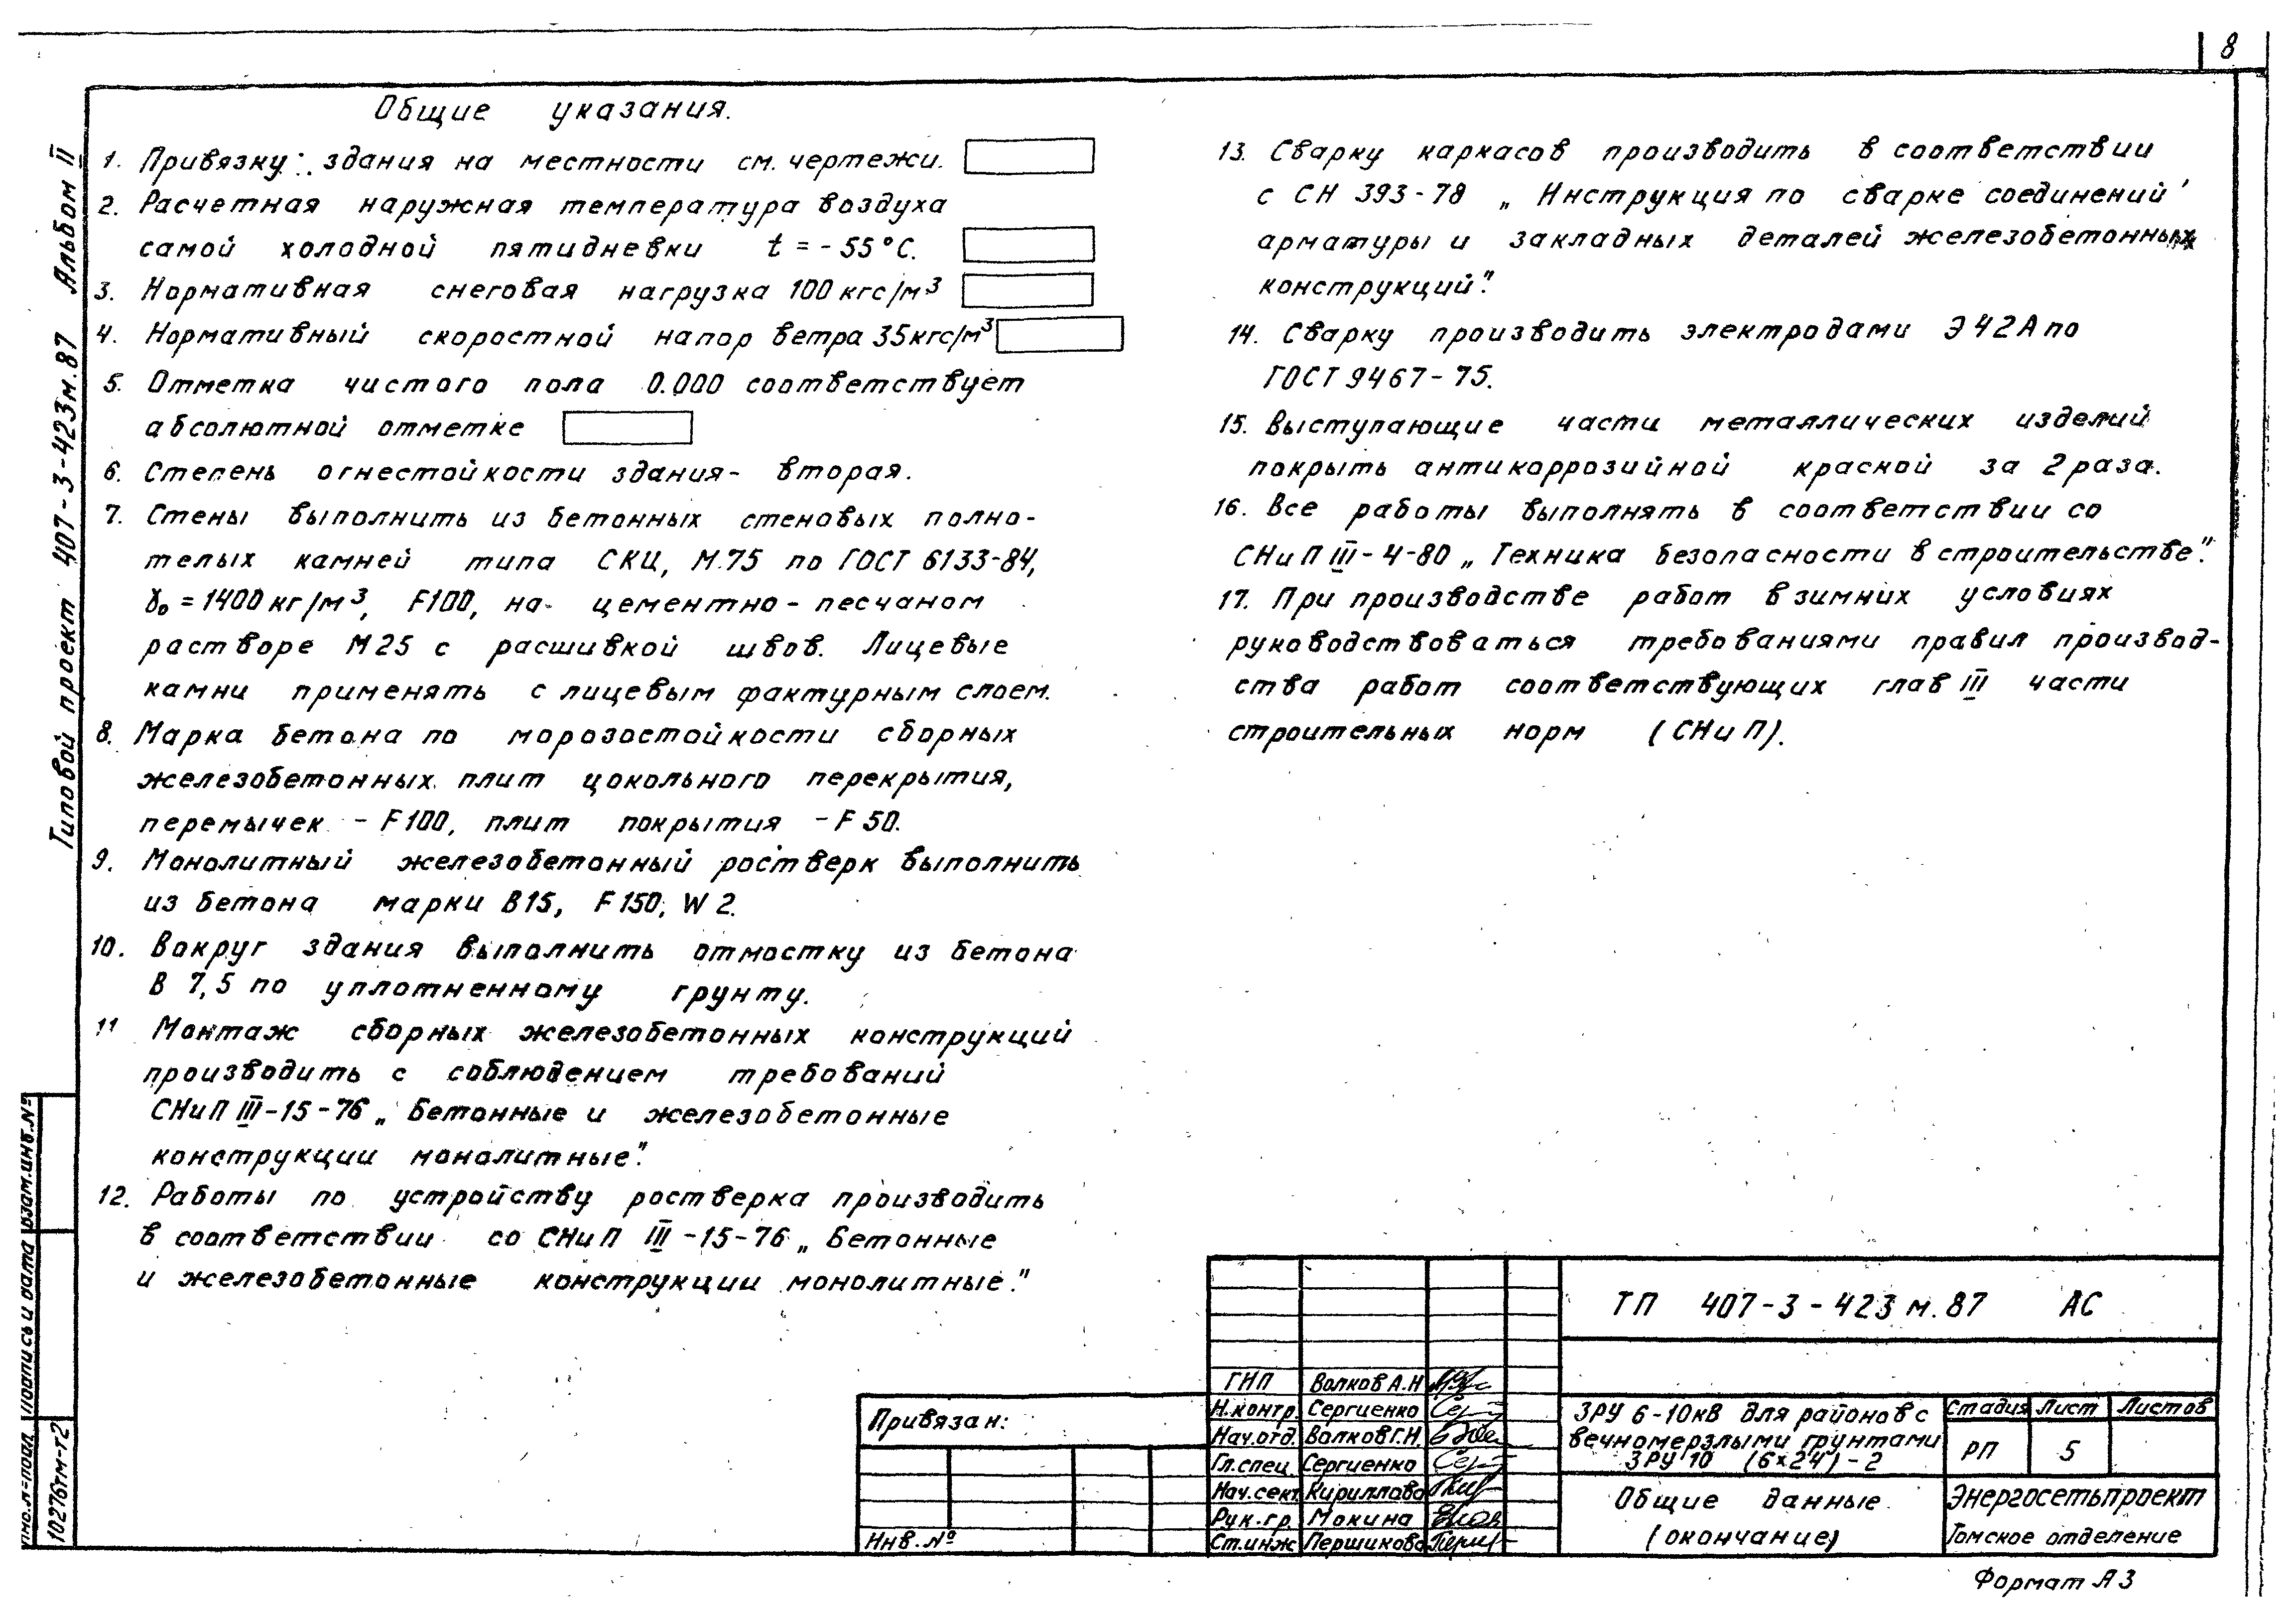 8
Общие указания.
1. Привязку здания на местности см. чертежи.
2. Расчетная наружная температура воздуха
самой холодной пятидневки t = - 55°С.
3. Нормативная снеговая нагрузка 100 кгс/м³
4. Нормативный скоростной напор ветра 35кгс/м³
5. Отметка чистого пола 0.000 соответствует
абсолютной отметке
6. Степень огнестойкости здания- вторая.
7. Стены выполнить из бетонных стеновых полно-
телых камней типа СКЦ, М.75 по ГОСТ 6133-84,
γ₀ = 1400 кг/м³, F100, на цементно - песчаном
растворе М25 с расшивкой швов. Лицевые
камни применять с лицевым фактурным слоем.
8. Марка бетона по морозостойкости сборных
железобетонных плит цокольного перекрытия,
перемычек - F100, плит покрытия - F 50.
9. Монолитный железобетонный ростверк выполнить
из бетона марки В15, F150, W2.
10. Вокруг здания выполнить отмостку из бетона
В 7,5 по уплотненному грунту.
11 Монтаж сборных железобетонных конструкций
производить с соблюдением требований
СНиП III-15-76 „Бетонные и железобетонные
конструкции монолитные".
12. Работы по устройству ростверка производить
в соответствии со СНиП III-15-76 „Бетонные
и железобетонные конструкции монолитные."
13. Сварку каркасов производить в соответствии
с СН 393-78 „Инструкция по сварке соединений
арматуры и закладных деталей железобетонных
конструкций".
14. Сварку производить электродами Э42А по
ГОСТ 9467-75.
15. Выступающие части металлических изделий
покрыть антикоррозийной краской за 2 раза.
16. Все работы выполнять в соответствии со
СНиП III-4-80 „Техника безопасности в строительстве".
17. При производстве работ в зимних условиях
руководствоваться требованиями правил производ-
ства работ соответствующих глав III части
строительных норм (СНиП).
Типовой проект 407-3-423м.87 Альбом II
Взам.инв.№
Подпись и дата
Инв.№подл.
10276тм-т2
Привязан:
Инв.№
ГИП Волков А.Н
Н.контр. Сергиенко
Нач.отд. Волков Г.Н.
Гл.спец. Сергиенко
Нач.сект. Кириллова
Рук.гр. Мокина
Ст.инж Першикова
ТП 407-3-423м.87 АС
ЗРУ 6-10кВ для районов с
вечномерзлыми грунтами
ЗРУ 10 (6×24)-2
Стадия Лист Листов
РП 5
Общие данные.
(окончание)
Энергосетьпроект
Томское отделение
Формат А3